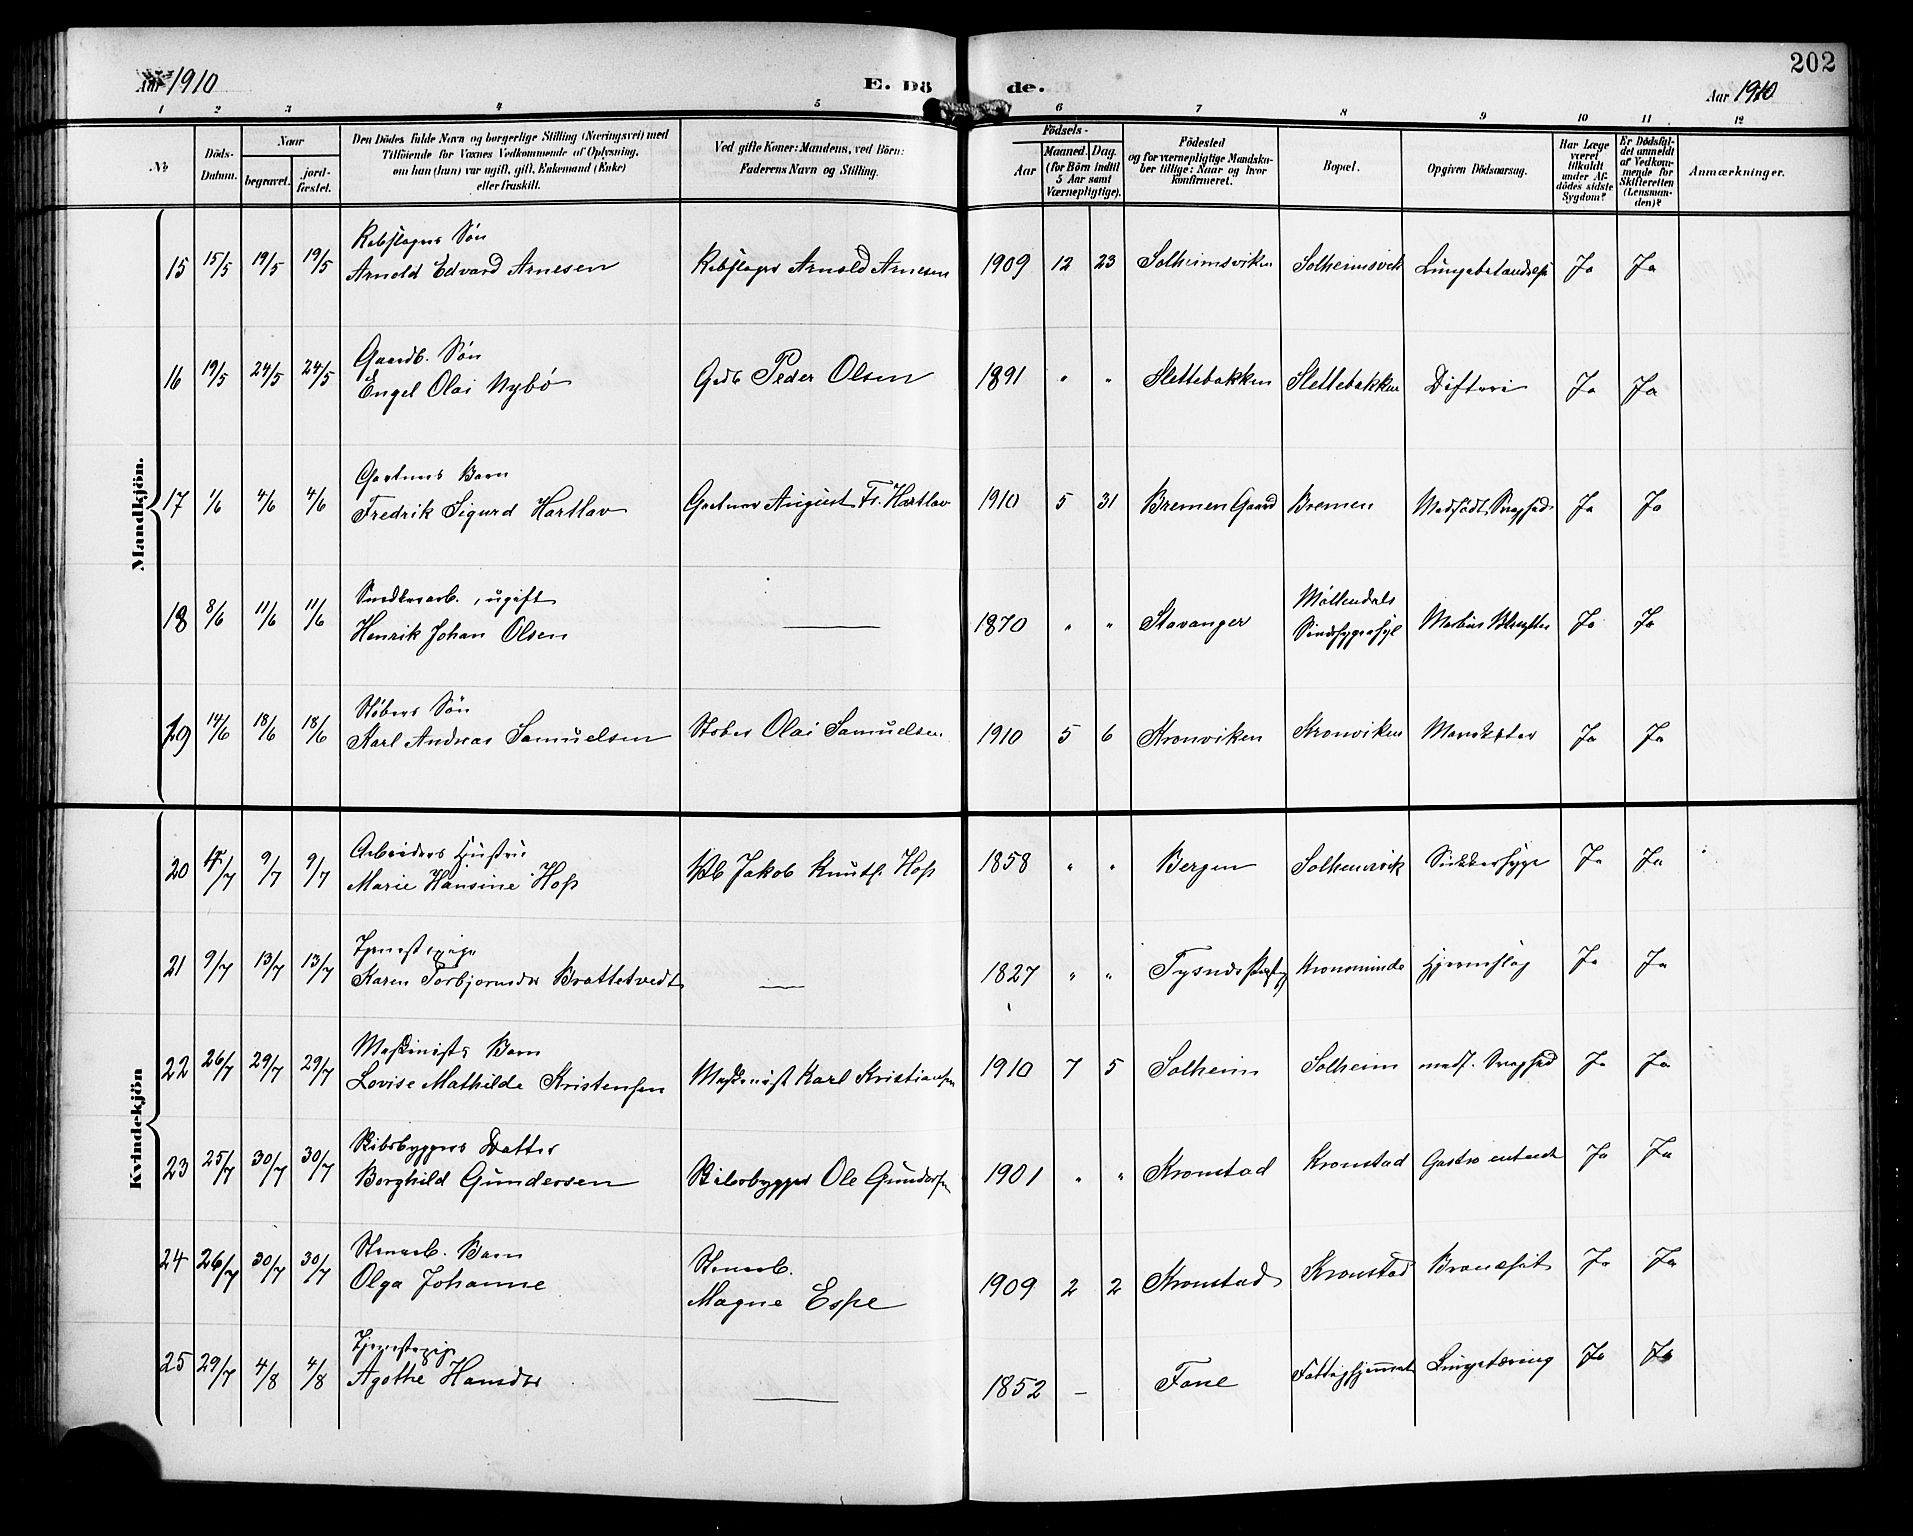 202
Aar 1910
E. Dö de.
Aar 1910
1 2 3 4 5 6 7 8 9 10 11 12
No
Döds-Datum.
Naar
begravet.
jord-fæstet.
Den Dödes fulde Navn og borgerlige Stilling (Næringsvei) med
Tilföiende for Voxnes Vedkommende af Oplysning,
om han (hun) var ugift, gift, Enkemand (Enke)
eller fraskilt.
Ved gifte Koner: Mandens, ved Börn:
Faderens Navn og Stilling.
Födsels-
Aar
Maaned. Dag.
(for Börn indtil
5 Aar samt
Værnepligtige).
Födested
og for værnepligtige Mandska-
ber tillige: Naar og hvor
konfirmeret.
Bopæl.
Opgiven Dödsaarsag.
Har Læge
været
tilkaldt
under Af-
dödes sidste
Sygdom?
Er Dödsfal-
det anmeldt
af Vedkom-
mende for
Skifteretten
(Lensman-
den)?
Anmærkninger.
Mandkjön.
Rebslagers Søn
15 15/5 19/5 19/5 Arnold Edvard Arnesen Rebslager Arnold Arnesen 1909 12 23 Solheimsviken Solheimsvik Ja Ja
Gaardb. Søn
16 19/5 24/5 24/5 Engel Olai Nybø Gedb Peder Olsen 1891 " " Slettebakken Slettebakken Difteri Ja Ja
Gartners Barn
17 1/6 4/6 4/6 Fredrik Sigurd Hartlav Gartner August Fr. Hartlav 1910 5 31 Bremen Gaard Bremen Medfødt Svaghed Ja Ja
Snedkerarb., ugift
18 8/6 11/6 11/6 Henrik Johan Olsen — 1870 " " Stavanger Möllendals Sindsygeasyl Morbus Ja Ja
Støbers Søn
19 14/6 18/6 18/6 Karl Andreas Samuelsen Støber Olai Samuelsen 1910 5 6 Kronviken Kronviken Ja Ja
Kvindekjön
Arbeiders Hustru
20 9/7 9/7 Marie Hansine Hop Arb Jakob Knuts. Hop 1858 " " Bergen Solheimsvik Sukkersyge Ja Ja
Tjenestepige
21 9/7 13/7 13/7 Karen Torbjørnsdtr Brattetvedt — 1827 " " Kronominde Hjerneslag Ja Ja
Maskinists Barn
22 26/7 29/7 29/7 Lovise Mathilde Kristensen Maskinist Karl Kristiansen 1910 7 5 Solheim Solheim medf. Svaghed Ja Ja
Skibsbyggers Datter
23 25/7 30/7 30/7 Borghild Gundersen Skibsbygger Ole Gundersen 1901 " " Kronstad Kronstad Gastro enterit Ja Ja
Stenarb. Barn
24 26/7 30/7 30/7 Olga Johanne Stenarb. Magne Espe 1909 2 2 Kronstad Kronstad Ja Ja
Tjenestepige
25 29/7 4/8 4/8 Agathe Hansdtr — 1852 – Fane Fattighjemmet Lungetæring Ja Ja